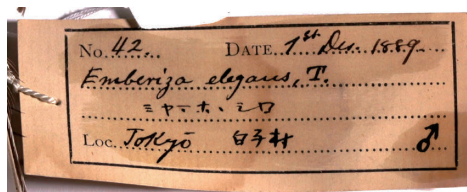 No. 42. DATE. 1st Dec. 1889.
Emberiza elegans, T.
ミヤマホヽジロ
Loc. Tokyō 白子村 ♂